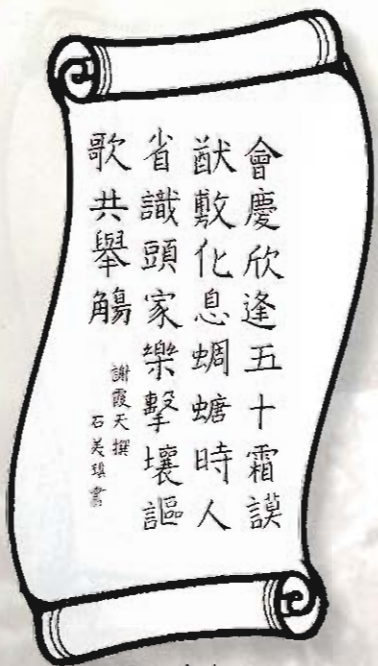 會慶欣逢五十霜謨
猷敷化息蜩螗時人
省識頭家樂擊壤謳
歌共舉觴
謝霞天撰
石美瑱書